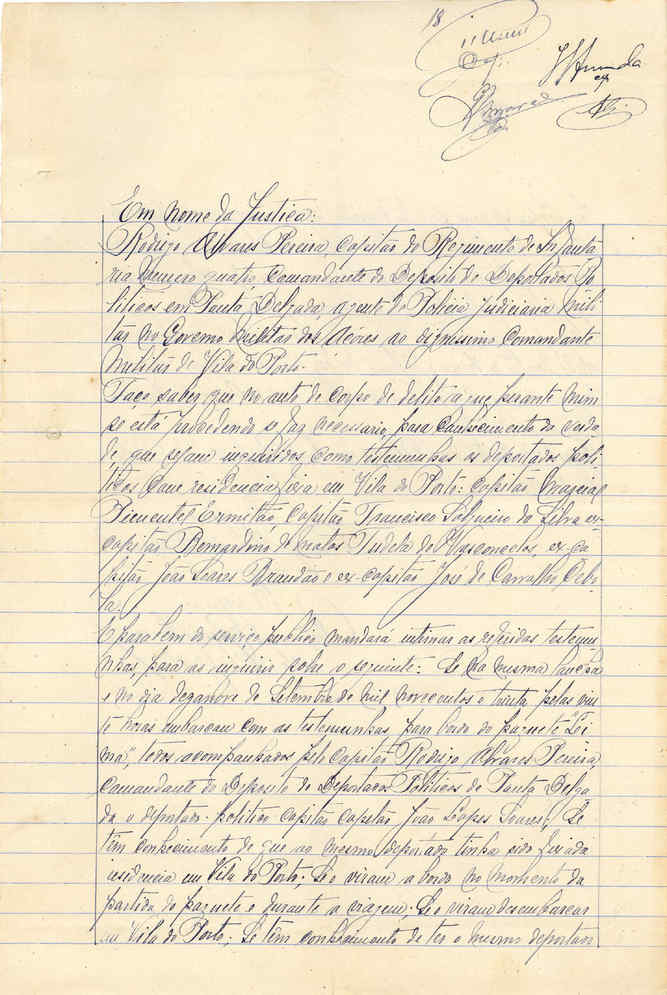 18
Em nome da Justiça:
Rodrigo Alvares Pereira, Capitão do Regimento de Infanta-
ria número quatro, Comandante do Deposito de Deportados Po-
liticos em Ponta Delgada, agente de Policia Judiciaria Mili-
tar no Governo Militar dos Açôres ao dignissimo Comandante
Militar de Vila do Porto.
Faço saber que no auto de corpo de delito a que perante mim
se está procedendo se faz necessario, para conhecimento da verda-
de, que sejam inquiridos como testemunhas os deportados poli-
ticos com residencia fixa em Vila do Porto: capitão
Pimentel Ermitão, Capitão Francisco Salgueiro da Silva ex-
capitão Bernardino de Matos Tudela de Vasconcelos, ex-ca-
pitão João Soares Brandão e ex-capitão José de Carvalho
E para bem do serviço publico mandará intimar as referidas testemu-
nhas, para as inquirir sobre o seguinte: Se na mesma lancha
e no dia dezanove de Setembro de mil novecentos e trinta, pelas vin-
te horas embarcaram com as testemunhas, para bordo do paquete Li-
ma", todos acompanhados pelo capitão Rodrigo Alvares Pereira,
Comandante do Deposito de Deportados Politicos de Ponta Delga-
da o deportado politico capitão capelão João Lopes Soares; Se
têm conhecimento de que ao mesmo deportado tinha sido fixada
residencia em Vila do Porto; Se o viram a bordo no momento da
partida do paquete e durante a viagem. Se o viram desembarcar
em Vila do Porto; Se têm conhecimento de ter o mesmo deportado